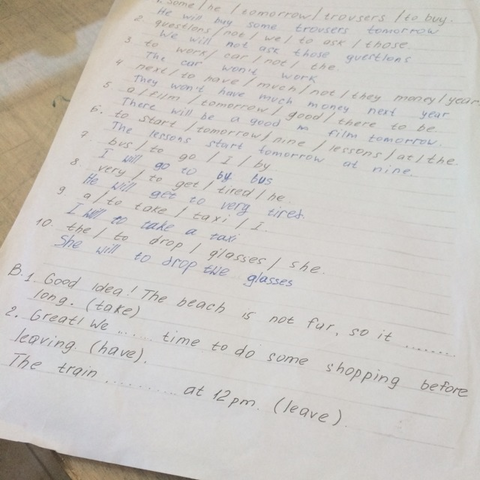 1. some / he / tomorrow / trousers / to buy.
He will buy some trousers tomorrow
2. questions / not / we / to ask / those.
We will not ask those questions
3. to work / car / not / the.
The car won't work
4. next / to have / much / not / they money / year
They won't have much money next year
5. a / film / tomorrow / good / there to be
There will be a good film tomorrow.
6. to start / tomorrow / nine / lessons / at / the
The lessons start tomorrow at nine
7. bus / to go / I / by
I will go to by bus
8. very / to get / tired / he.
He will get to very tired.
9. a / to take / taxi / I.
I will to take a taxi.
10. the / to drop / glasses / she.
She will to drop the glasses
B. 1 Good idea! The beach is not far, so it ........
long. (take)
2. Great! We ...... time to do some shopping before
leaving (have).
The train .......... at 12pm. (leave).